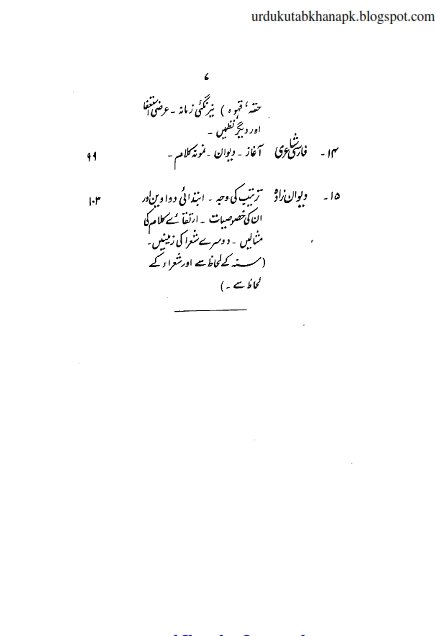 urdukutabkhanapk.blogspot.com
۷
حقہ، قہوہ) نیرنگئی زمانہ ۔ عرضی استعفا
اور دیگر نظمیں ۔
۱۴۔ فارسی شاعری آغاز ۔ دیوان ۔ نمونہ کلام ۔ ۹۹
۱۵۔ دیوان زادہ ترتیب کی وجہ ۔ ابتدائی دواوین اور ۱۰۳
ان کی خصوصیات ۔ ارتقائے کلام کی
مثالیں ۔ دوسرے شعرا کی زمینیں۔
(سنہ کے لحاظ سے اور شعراء کے
لحاظ سے ۔)